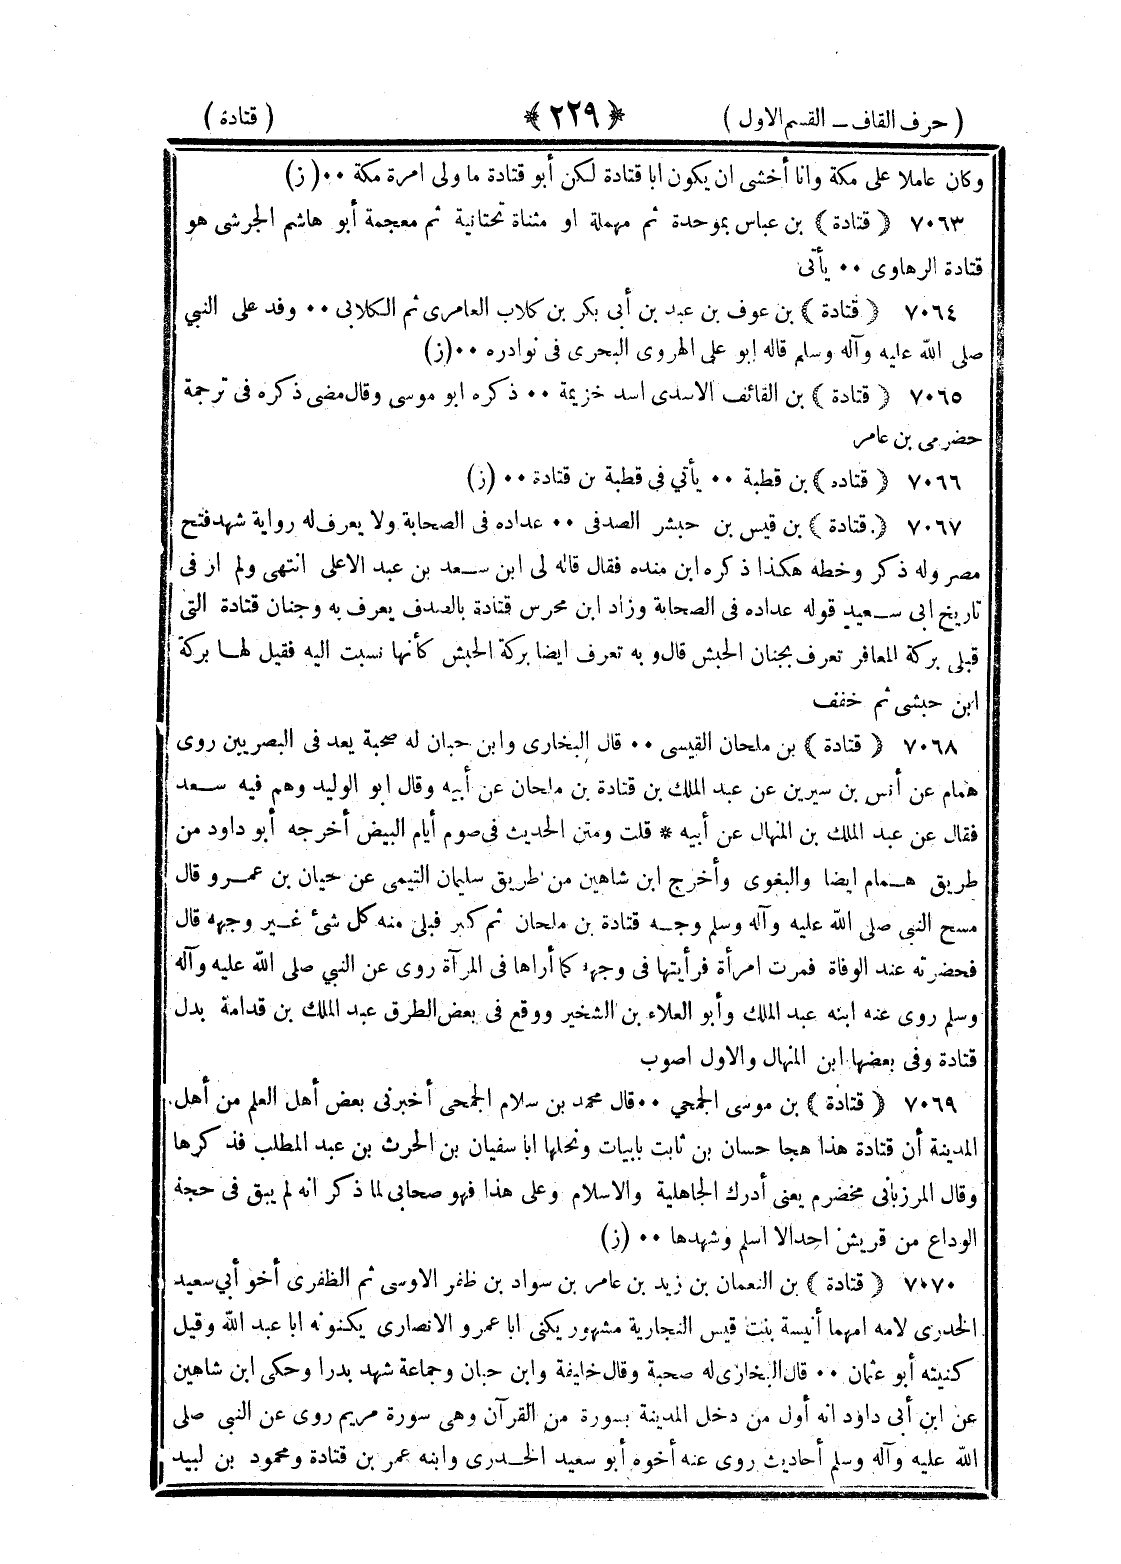 ( حرف القاف ـ القسم الاول ) ﴿ ٢٢٩ ﴾ ( قتادة )
وكان عاملا على مكة وانا أخشى ان يكون ابا قتادة لكن أبو قتادة ما ولى امرة مكة ٠٠ ( ز )
٧٠٦٣ ( قتادة ) بن عباس بموحدة ثم مهملة او مثناة تحتانية ثم معجمة أبو هاشم الجرشى هو
قتادة الرهاوى ٠٠ يأتى
٧٠٦٤ ( قتادة ) بن عوف بن عبد بن أبى بكر بن كلاب العامرى ثم الكلابى ٠٠ وفد على النبي
صلى الله عليه وآله وسلم قاله ابو على الهروى البحرى فى نوادره ٠٠ (ز)
٧٠٦٥ ( قتادة ) بن القائف الاسدى اسد خزيمة ٠٠ ذكره ابو موسى وقال مضى ذكره فى ترجمة
حضرمى بن عامر
٧٠٦٦ ( قتاده ) بن قطبة ٠٠ يأتي فى قطبة بن قتادة ٠٠ (ز)
٧٠٦٧ ( قتادة ) بن قيس بن حبشر الصدفى ٠٠ عداده فى الصحابة ولا يعرف له رواية شهد فتح
مصر وله ذكر وخطه هكذا ذكره ابن منده فقال قاله لى ابن سعد بن عبد الاعلى انتهى ولم ار فى
تاريخ ابى سعيد قوله عداده فى الصحابة وزاد ابن محرس قتادة بالصدف يعرف به وجنان قتادة التى
قبلى بركة المعافر تعرف بجنان الحبش قال وبه تعرف ايضا بركة الحبش كأنها نسبت اليه فقيل لها بركة
ابن حبشى ثم خفف
٧٠٦٨ ( قتادة ) بن ملحان القيسى ٠٠ قال البخارى وابن حبان له صحبة يعد فى البصريين روى
همام عن أنس بن سيرين عن عبد الملك بن قتادة بن ملحان عن أبيه وقال ابو الوليد وهم فيه سعد
فقال عن عبد الملك بن المنهال عن أبيه * قلت ومتن الحديث فى صوم أيام البيض أخرجه أبو داود من
طريق همام ايضا والبغوى وأخرج ابن شاهين من طريق سليمان التيمى عن حيان بن عمرو قال
مسح النبى صلى الله عليه وآله وسلم وجه قتادة بن ملحان ثم كبر فبلى منه كل شئ غير وجهه قال
فحضرته عند الوفاة فمرت امرأة فرأيتها فى وجهه كما أراها فى المرآة روى عن النبي صلى الله عليه وآله
وسلم روى عنه ابنه عبد الملك وأبو العلاء بن الشخير ووقع فى بعض الطرق عبد الملك بن قدامة بدل
قتادة وفى بعضها ابن المنهال والاول اصوب
٧٠٦٩ ( قتادة ) بن موسى الجمحي ٠٠ قال محمد بن سلام الجمحى أخبرنى بعض أهل العلم من أهل
المدينة أن قتادة هذا هجا حسان بن ثابت بابيات ونحلها ابا سفيان بن الحرث بن عبد المطلب فذكرها
وقال المرزبانى مخضرم يعنى أدرك الجاهلية والاسلام وعلى هذا فهو صحابى لما ذكر انه لم يبق فى حجة
الوداع من قريش احد الا اسلم وشهدها ٠٠ (ز)
٧٠٧٠ ( قتادة ) بن النعمان بن زيد بن عامر بن سواد بن ظفر الاوسى ثم الظفرى أخو أبي سعيد
الخدرى لامه امهما أنيسة بنت قيس النجارية مشهور يكنى ابا عمرو الانصارى يكنونه ابا عبد الله وقيل
كنيته أبو عثمان ٠٠ قال البخارى له صحبة وقال خليفة وابن حبان وجماعة شهد بدرا وحكى ابن شاهين
عن ابن أبى داود انه أول من دخل المدينة بسورة من القرآن وهى سورة مريم روى عن النبى صلى
الله عليه وآله وسلم أحاديث روى عنه أخوه أبو سعيد الخدرى وابنه عمر بن قتادة ومحمود بن لبيد